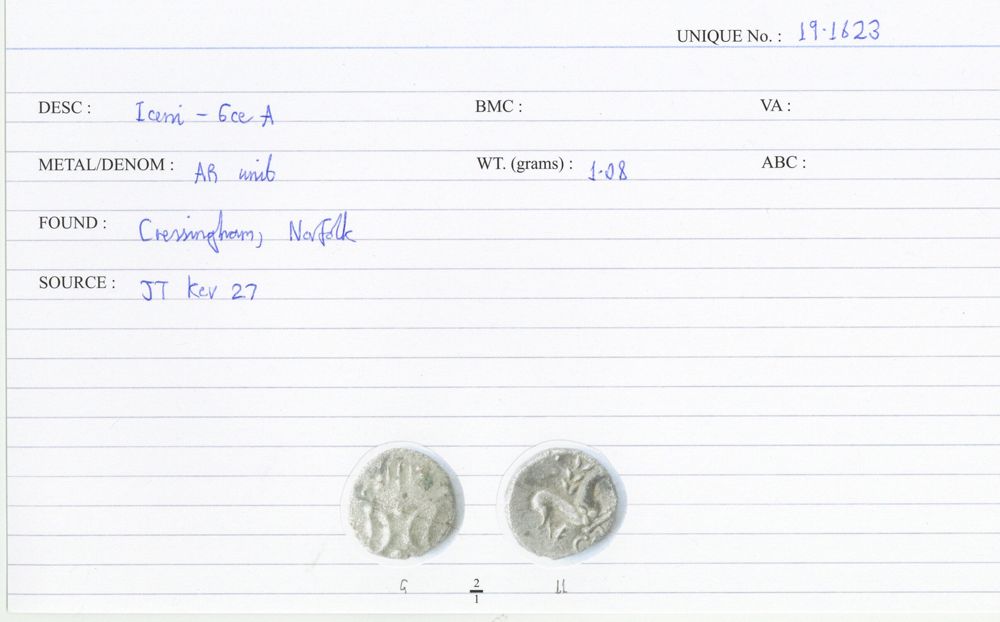 UNIQUE No. : 19.1623
DESC : Iceni - Ece A BMC : VA :
METAL/DENOM : AR unit WT. (grams) : 1.08 ABC :
FOUND : Cressingham, Norfolk
SOURCE : JT Kev 27
G 2/1 LL